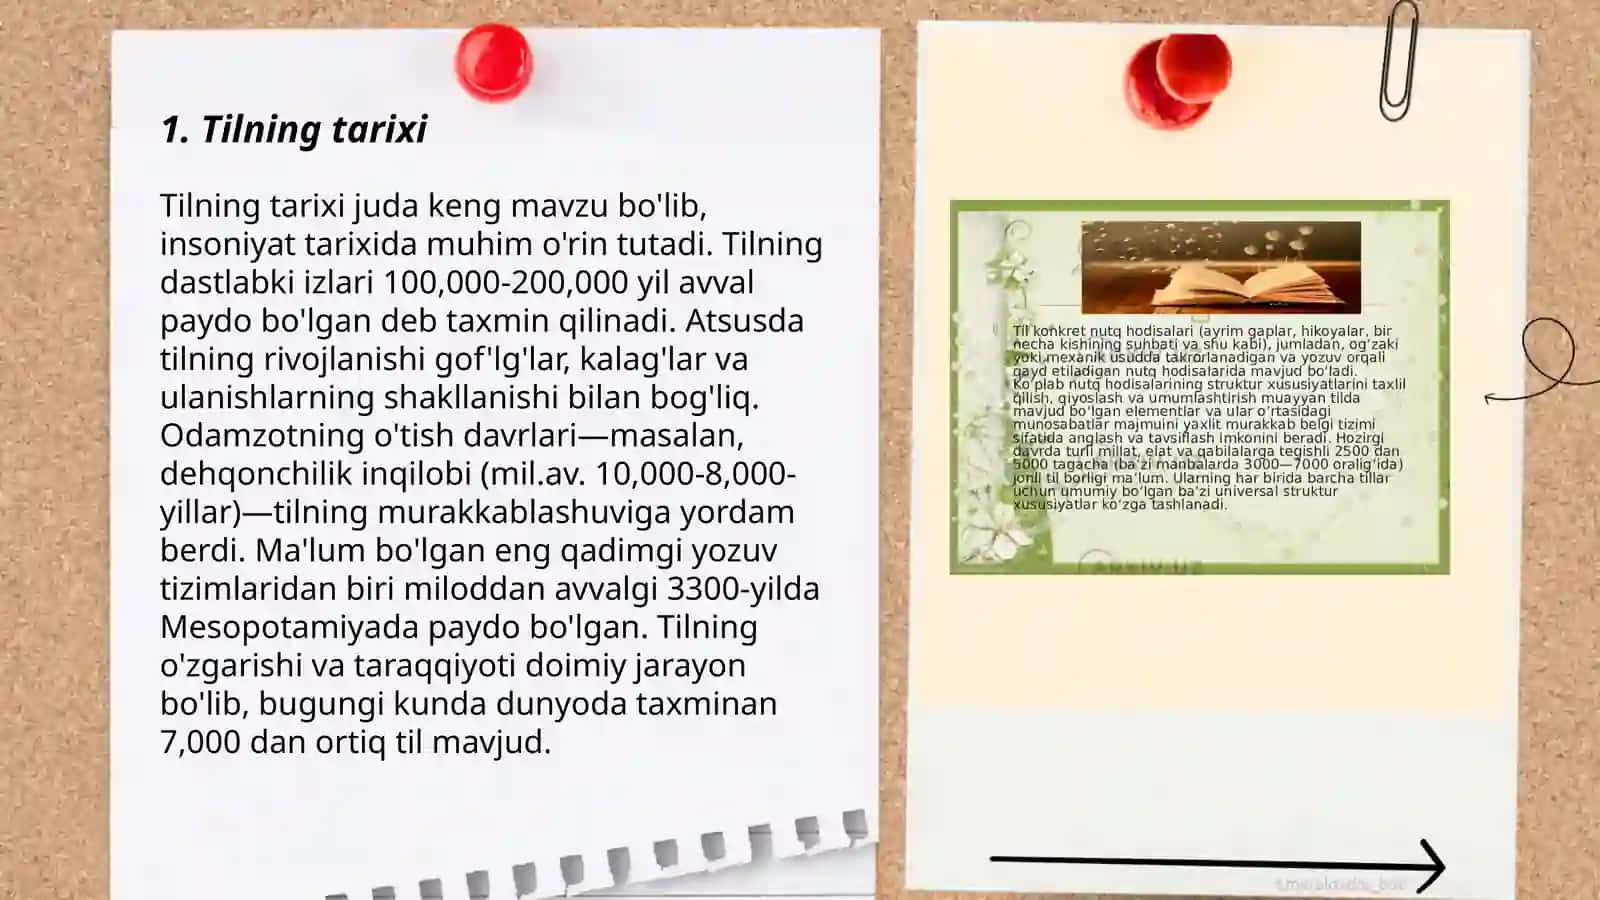 1. Tilning tarixi
Tilning tarixi juda keng mavzu bo'lib,
insoniyat tarixida muhim o'rin tutadi. Tilning
dastlabki izlari 100,000-200,000 yil avval
paydo bo'lgan deb taxmin qilinadi. Atsusda
tilning rivojlanishi gof'lg'lar, kalag'lar va
ulanishlarning shakllanishi bilan bog'liq.
Odamzotning o'tish davrlari—masalan,
dehqonchilik inqilobi (mil.av. 10,000-8,000-
yillar)—tilning murakkablashuviga yordam
berdi. Ma'lum bo'lgan eng qadimgi yozuv
tizimlaridan biri miloddan avvalgi 3300-yilda
Mesopotamiyada paydo bo'lgan. Tilning
o'zgarishi va taraqqiyoti doimiy jarayon
bo'lib, bugungi kunda dunyoda taxminan
7,000 dan ortiq til mavjud.
Til konkret nutq hodisalari (ayrim gaplar, hikoyalar, bir
necha kishining suhbati va shu kabi), jumladan, og‘zaki
yoki mexanik usudda takrorlanadigan va yozuv orqali
qayd etiladigan nutq hodisalarida mavjud bo‘ladi.
Ko‘plab nutq hodisalarining struktur xususiyatlarini taxlil
qilish, qiyoslash va umumlashtirish muayyan tilda
mavjud bo‘lgan elementlar va ular o‘rtasidagi
munosabatlar majmuini yaxlit murakkab belgi tizimi
sifatida anglash va tavsiflash imkonini beradi. Hozirgi
davrda turli millat, elat va qabilalarga tegishli 2500 dan
5000 tagacha (ba’zi manbalarda 3000—7000 oralig‘ida)
jonli til borligi ma’lum. Ularning har birida barcha tillar
uchun umumiy bo‘lgan ba’zi universal struktur
xususiyatlar ko‘zga tashlanadi.
ARXIV.UZ